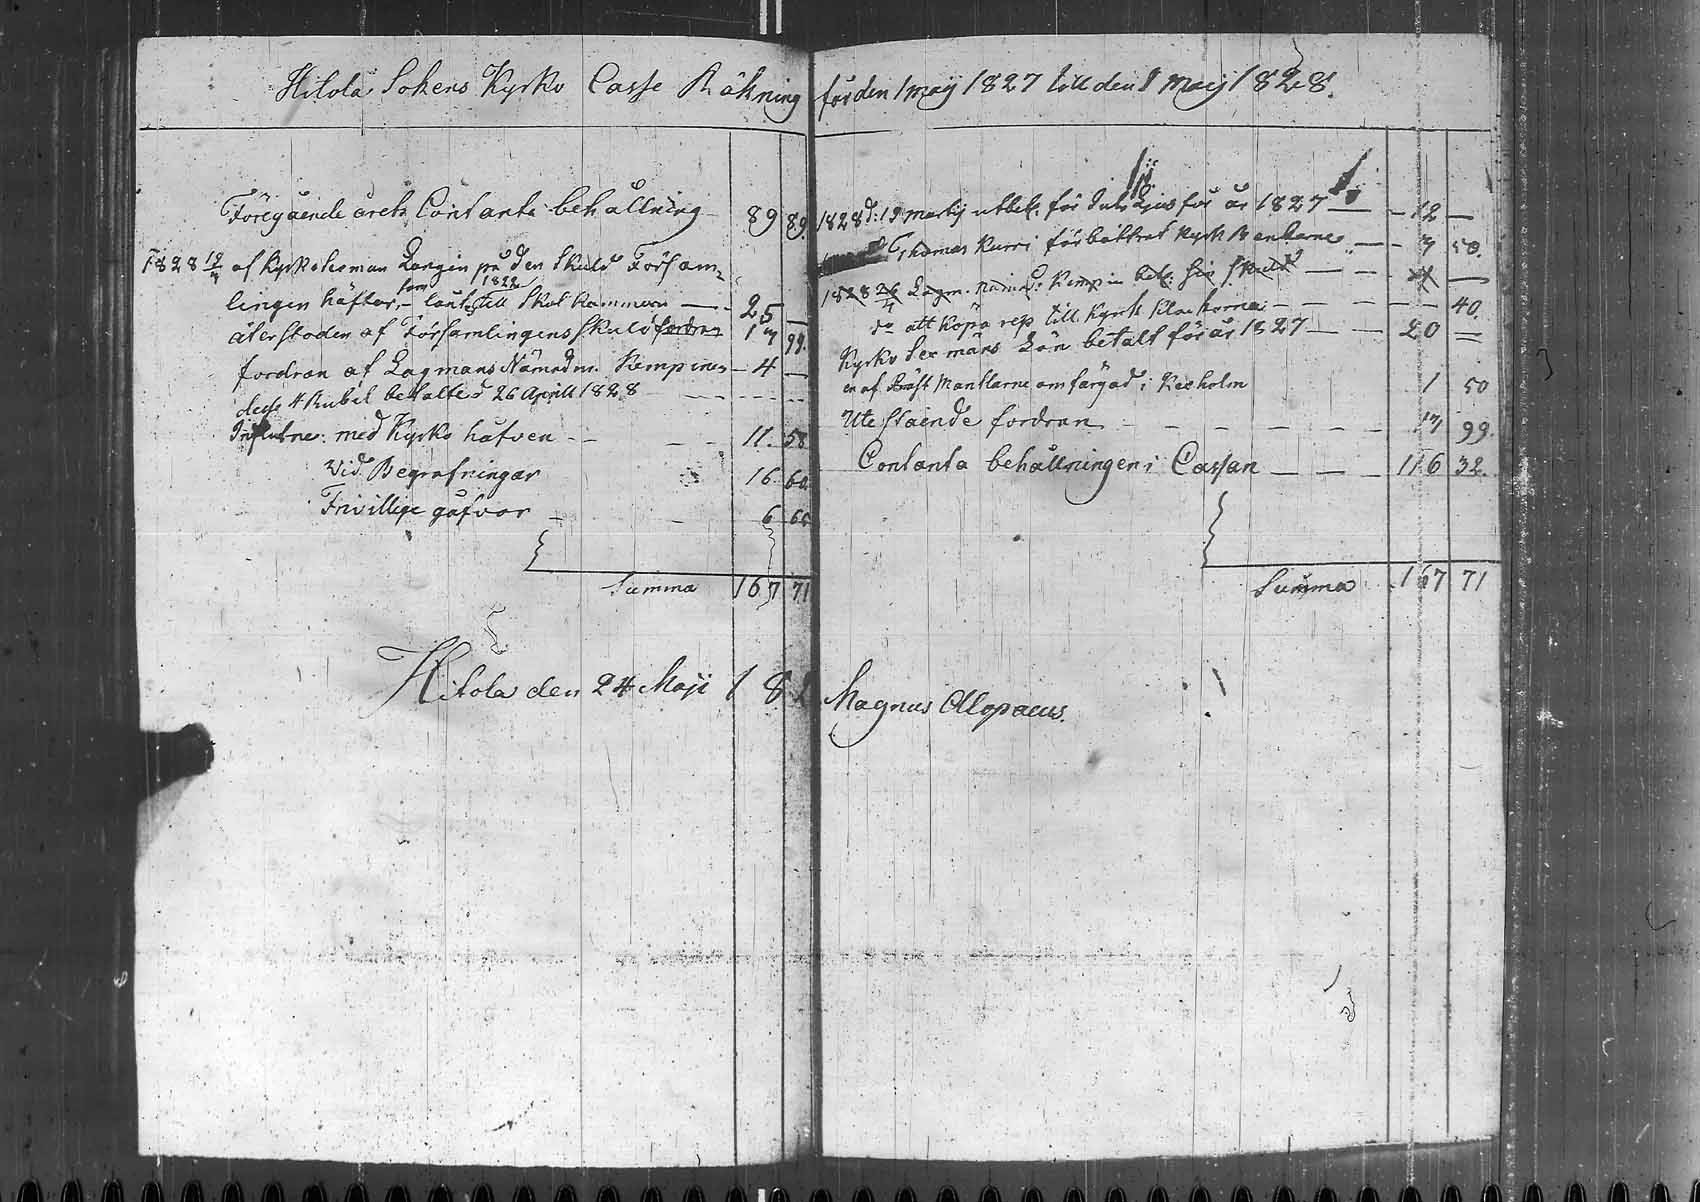 Hitola Sokens Kyrko Casse Räkning för den 1 maij 1827 till den 1 Maij 1828.
Föregående årets Contanta behållning 89 89.
1828 af Kyrkolesman Largin på den Skuld Församlingen häftar,
som
lånt 1822 till Skol Kammern — 25 —
återstoden af Församlingens Skuld fordran 17 99.
fordran af Lagmans Nämndm. Kempinen — 4 —
desse 4 Rubel betaltes d 26 Aprill 1828 - - - -
Influtne med Kyrko håfven - - - - 11. 58
Vid Begrafningar 16. 60.
Frivillige gåfvor - - 6 65
Summa 167 71
Hitola den 24 Maji 182
1828 d: 19 martij utbet. för Ljus för år 1827 — — 12 —
Thomas Kurri förbättrat Kyrk Bänkarne — 7 50.
1828 26/4 Lagm. Nämd: Kempin bet. sin skuld — — 4 —
do att köpa rep till Kyrk Klockorna - - - - 40.
Kyrko Sexmäns Lön betalt för år 1827 — — 20 =
en af Präst Mantlarne omfärgad i Kexholm 1 50
Utestående fordran - - - - - - 17 99.
Contanta behållningen i Cassan — — — 116 32.
Summa 167 71
Magnus Alopaeus.